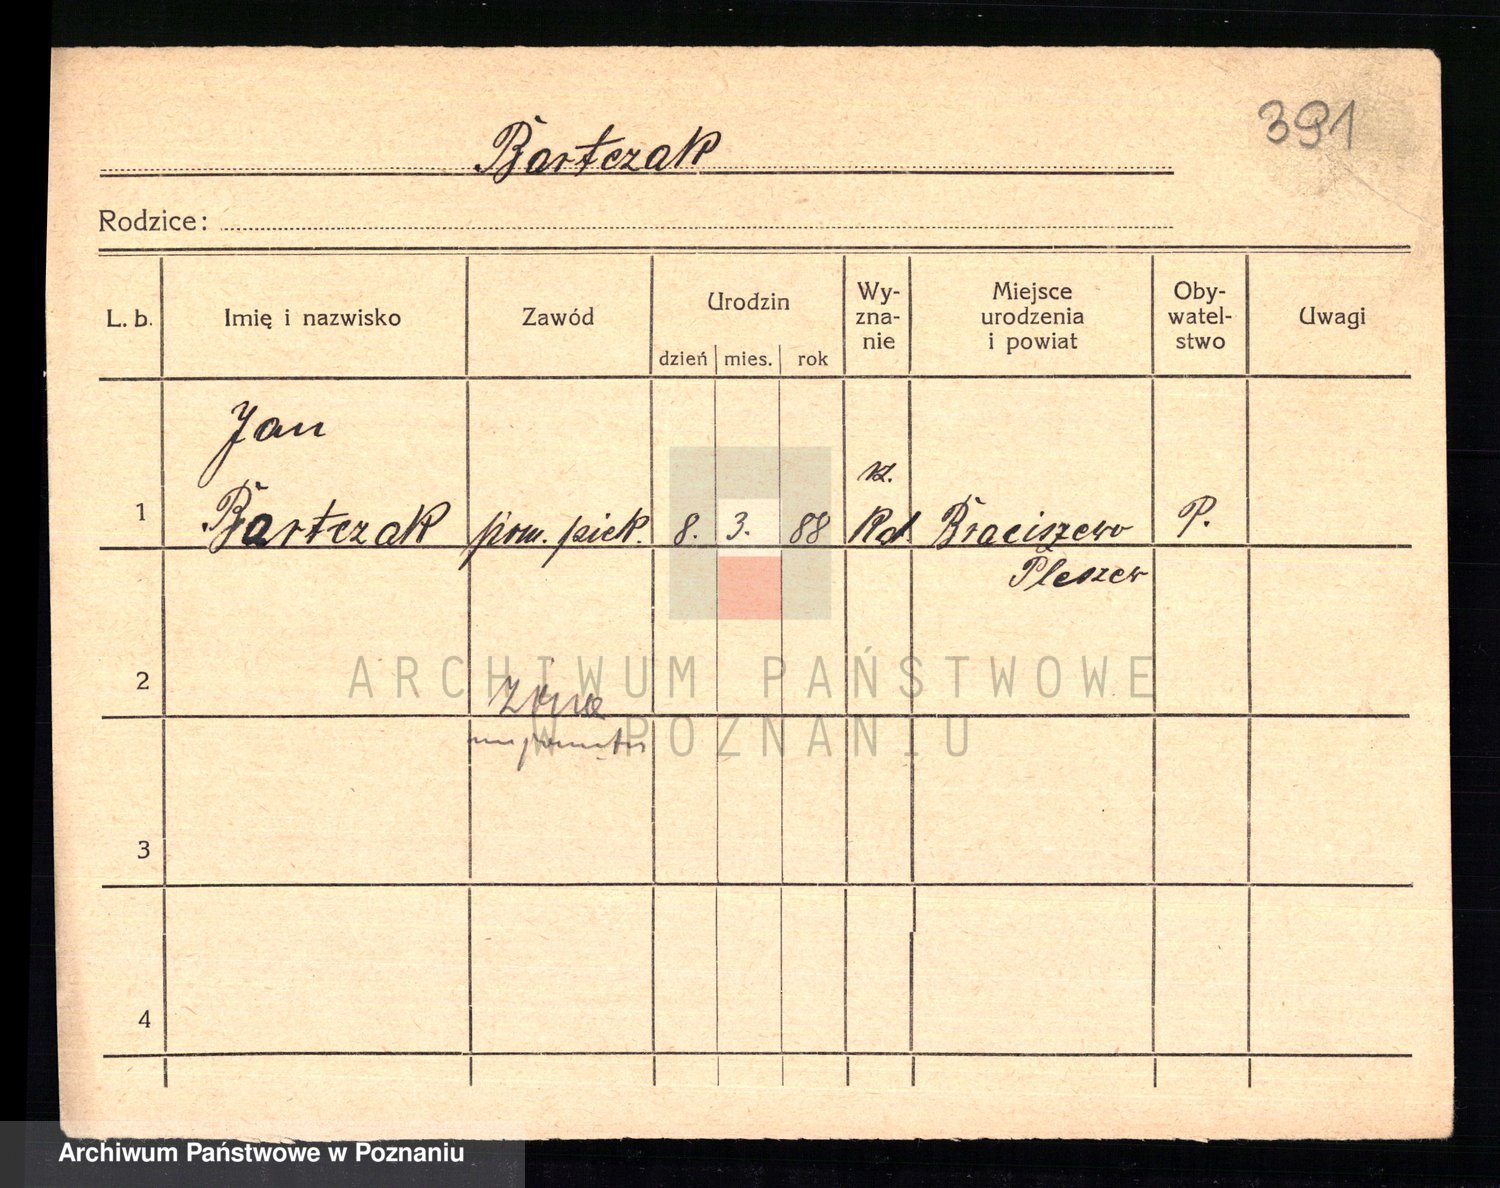 391
Bartczak
Rodzice:
L. b.
Imię i nazwisko
Zawód
Urodzin
dzień mies. rok
Wy-
zna-
nie
Miejsce
urodzenia
i powiat
Oby-
watel-
stwo
Uwagi
Jan
1 Bartczak pom. piek. 8. 3. 88 rz. Kat. Braciszewo P.
Pleszew
2
3
4
ARCHIWUM PAŃSTWOWE
W POZNANIU
Archiwum Państwowe w Poznaniu